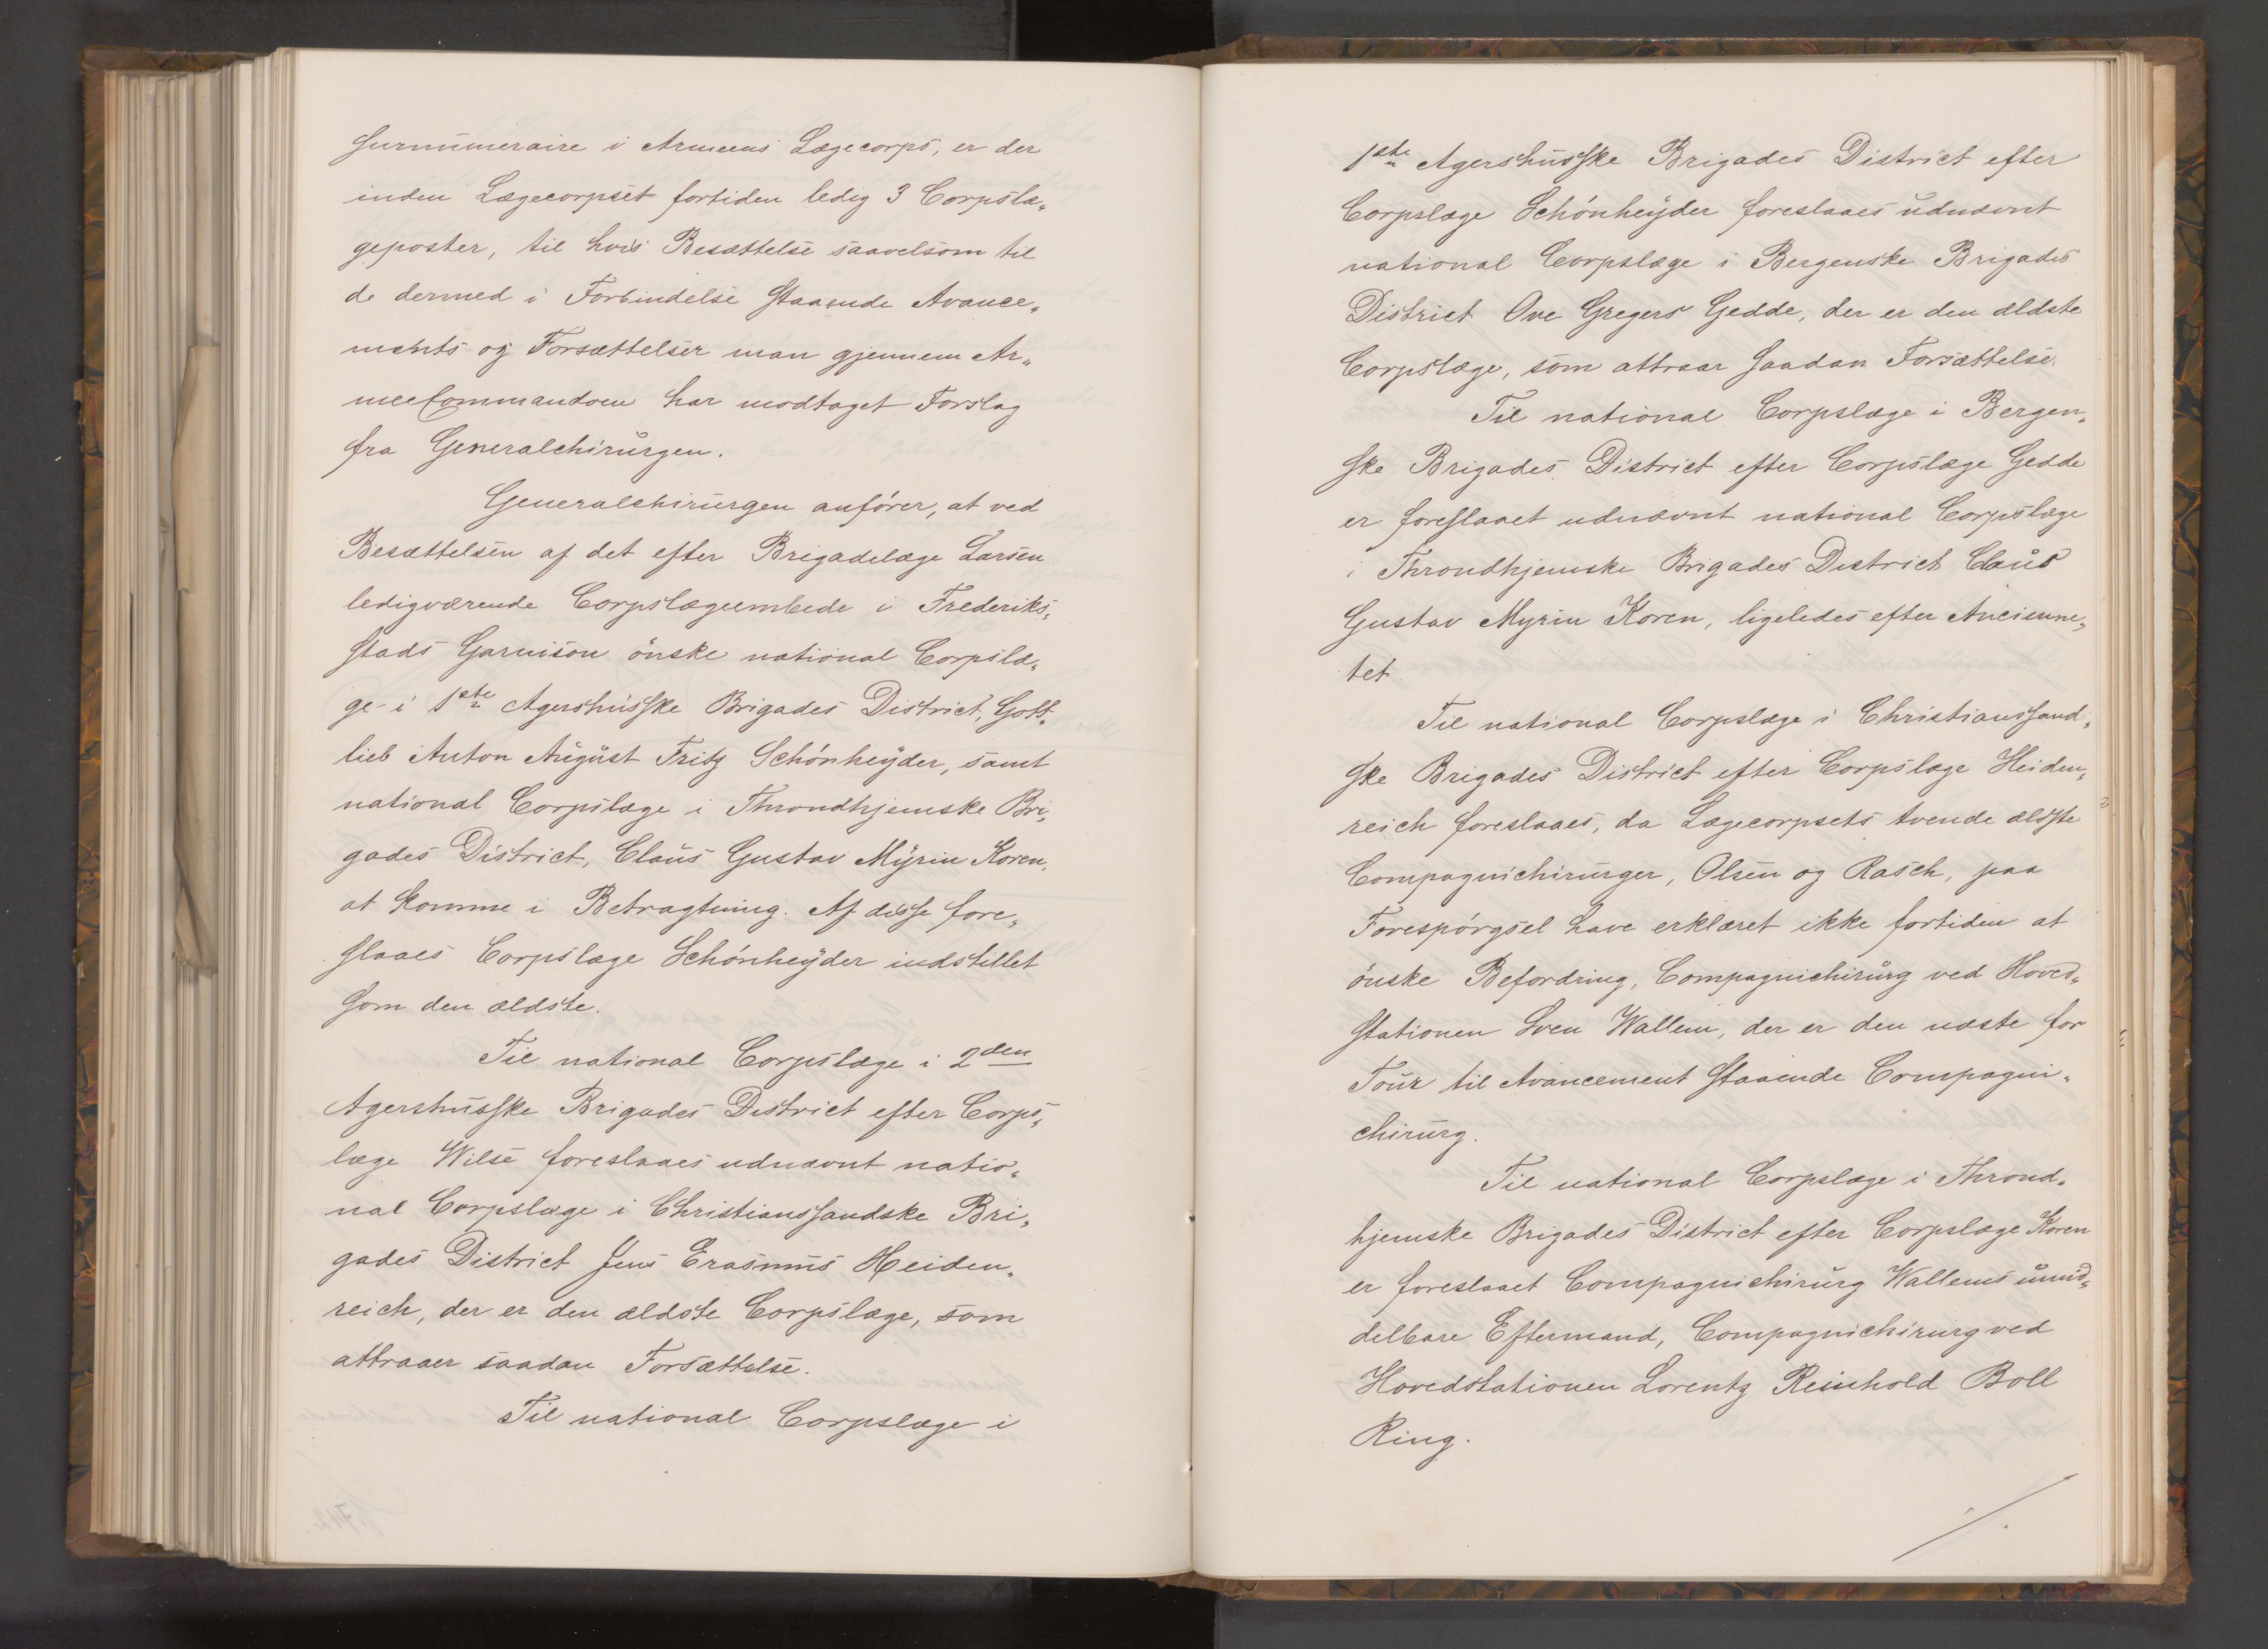 surnumeraire i Armeens Lægecorps, er der
inden Lægecorpset fortiden ledig 3 Corpslæ„
geposter, til hvis Besættelse saavelsom til
de dermed i Forbindelse staaende Avance„
ments og Forsættelser man gjennem Ar„
meeCommandoen har modtaget Forslag
fra Generalchirurgen.
Generalchirurgen anfører, at ved
Besættelsen af det efter Brigadelæge Larsen
ledigværende Corpslægeembede i Frederiks„
stads Garnison ønske national Corpslæ„
ge i 1ste Agershusske Brigades District, Gott„
lieb Anton August Fritz Schønheyder, samt
national Corpslæge i Throndhjemske Bri„
gades District, Claus Gustav Myrin Koren,
at komme i Betragtning. Af disse fore„
slaaes Corpslæge Schønheyder indstillet
som den ældste.
Til national Corpslæge i 2den
Agershusske Brigades District efter Corps„
læge Wilse foreslaaes udnævnt natio„
nal Corpslæge i Christianssandske Bri„
gades District Jens Erasmus Heiden„
reich, der er den ældste Corpslæge, som
attraaer saadan Forsættelse.
Til national Corpslæge i
1ste Agershusske Brigades District efter
Corpslæge Schønheyder foreslaaes udnævnt
national Corpslæge i Bergenske Brigades
District Ove Gregers Gedde, der er den ældste
Corpslæge, som attraar saadan Forsættelse.
Til national Corpslæge i Bergen„
ske Brigades District efter Corpslæge Gedde
er foreslaaet udnævnt national Corpslæge
i Throndhjemske Brigades District Claus
Gustav Myrin Koren, ligeledes efter Ancienne„
tet.
Til national Corpslæge i Christianssand„
ske Brigades District efter Corpslæge Heiden„
reich foreslaaes, da Lægecorpsets tvende ældste
Compagnichirurger, Olsen og Rasch, paa
Forespørgsel have erklæret ikke fortiden at
ønske Befordring, Compagnichirurg ved Hoved„
stationen Sven Wallem, der er den næste for
Tour til Avancement staaende Compagni„
chirurg.
Til national Corpslæge i Thrond„
hjemske Brigades District efter Corpslæge Koren
er foreslaaet Compagnichirurg Wallems umid„
delbare Eftermand, Compagnichirurg ved
Hovedstationen Lorentz Reinhold Boll
Ring.